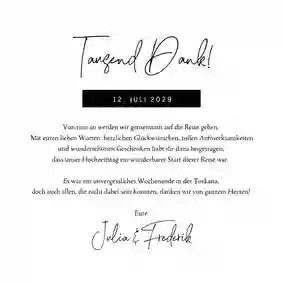 Tausend Dank!
12. JULI 2029
Von nun an werden wir gemeinsam auf die Reise gehen.
Mit euren lieben Worten, herzlichen Glückwünschen, tollen Aufmerksamkeiten
und wunderschönen Geschenken habt ihr dazu beigetragen,
dass unser Hochzeitstag ein wunderbarer Start dieser Reise war.
Es war ein unvergessliches Wochenende in der Toskana,
doch auch allen, die nicht dabei sein konnten, danken wir von ganzem Herzen!
Eure
Julia & Frederik